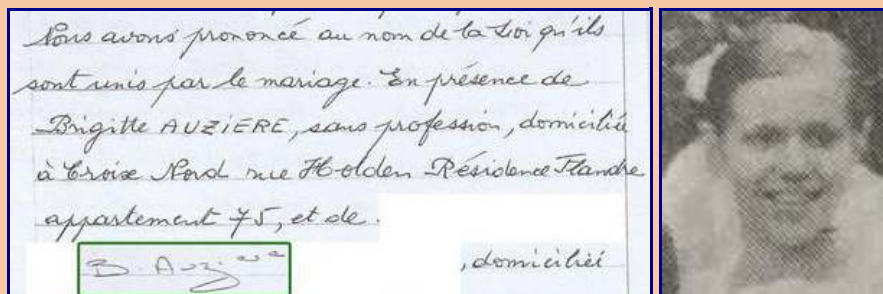 Nous avons prononcé au nom de la Loi qu'ils
sont unis par le mariage. En présence de
Brigitte AUZIERE, sans profession, domiciliée
à Croix Nord rue Holden Résidence Flandre
appartement 75, et de
, domiciliée
B. Auziere